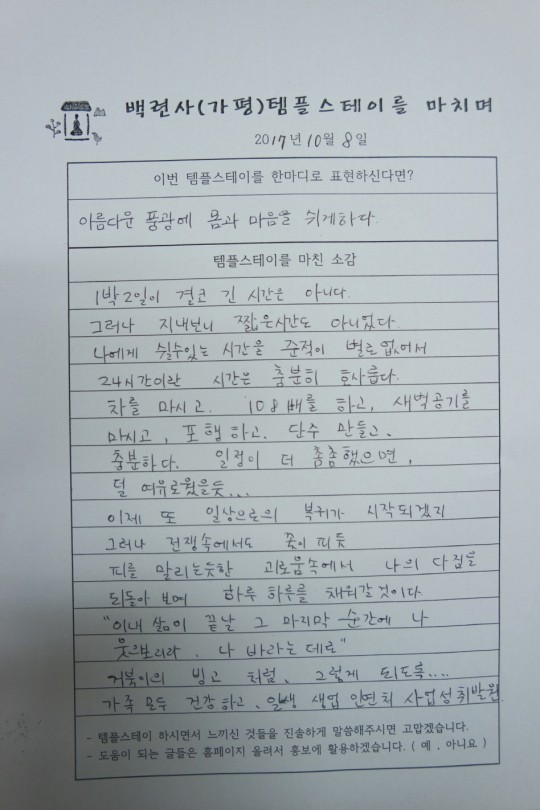 백련사(가평)템플스테이를 마치며
2017년 10월 8일
이번 템플스테이를 한마디로 표현하신다면?
아름다운 풍광에 몸과 마음을 쉬게하다.
템플스테이를 마친 소감
1박2일이 결코 긴 시간은 아니다.
그러나 지내보니 짧은시간도 아니었다.
나에게 쉴수있는 시간을 준적이 별로 없어서
24시간이란 시간은 충분히 호사롭다.
차를 마시고. 108배를 하고, 새벽공기를
마시고, 포행하고. 단주 만들고.
충분하다. 일정이 더 촘촘했으면,
덜 여유로웠을듯...
이제 또 일상으로의 복귀가 시작되겠지
그러나 전쟁속에서도 꽃이 피듯
피를 말리는듯한 괴로움속에서 나의 다짐을
되돌아 보며 하루 하루를 채워갈 것이다.
"이내 삶이 끝날 그 마지막 순간에 나
웃으보리라. 나 바라는 데로"
거북이의 빙고 처럼, 그렇게 되도록....
가족 모두 건강하고, 일생 생업 인연처 사업성취발원
- 템플스테이 하시면서 느끼신 것들을 진솔하게 말씀해주시면 고맙겠습니다.
- 도움이 되는 글들은 홈페이지 올려서 홍보에 활용하겠습니다. ( 예 , 아니요 )